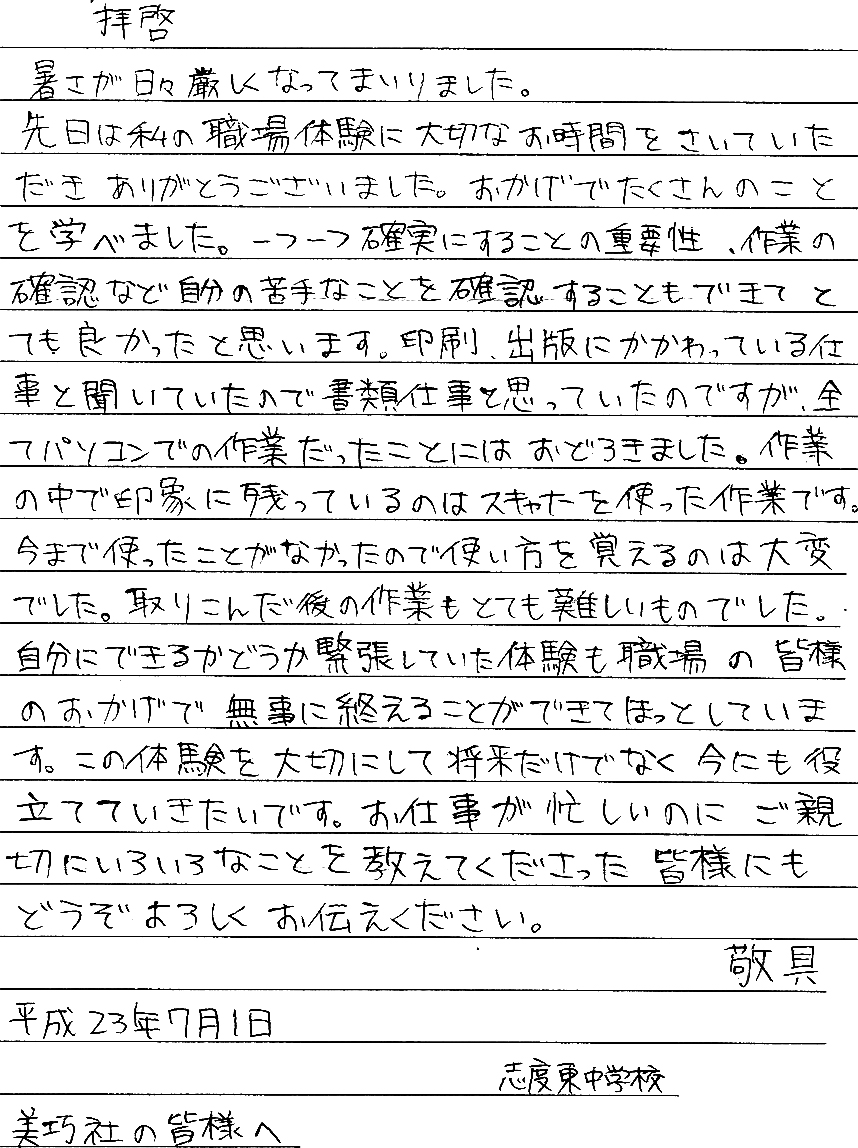 拝啓
暑さが日々厳しくなってまいりました。
先日は私の職場体験に大切なお時間をさいていた
だきありがとうございました。おかげでたくさんのこと
を学べました。一つ一つ確実にすることの重要性、作業の
確認など自分の苦手なことを確認することもできてと
ても良かったと思います。印刷、出版にかかわっている仕
事と聞いていたので書類仕事と思っていたのですが、全
てパソコンでの作業だったことにはおどろきました。作業
の中で印象に残っているのはスキャナーを使った作業です。
今まで使ったことがなかったので使い方を覚えるのは大変
でした。取りこんだ後の作業もとても難しいものでした。
自分にできるかどうか緊張していた体験も職場の皆様
のおかげで無事に終えることができてほっとしていま
す。この体験を大切にして将来だけでなく今にも役
立てていきたいです。お仕事が忙しいのにご親
切にいろいろなことを教えてくださった皆様にも
どうぞよろしくお伝えください。
敬具
平成23年7月1日
志度東中学校
美巧社の皆様へ